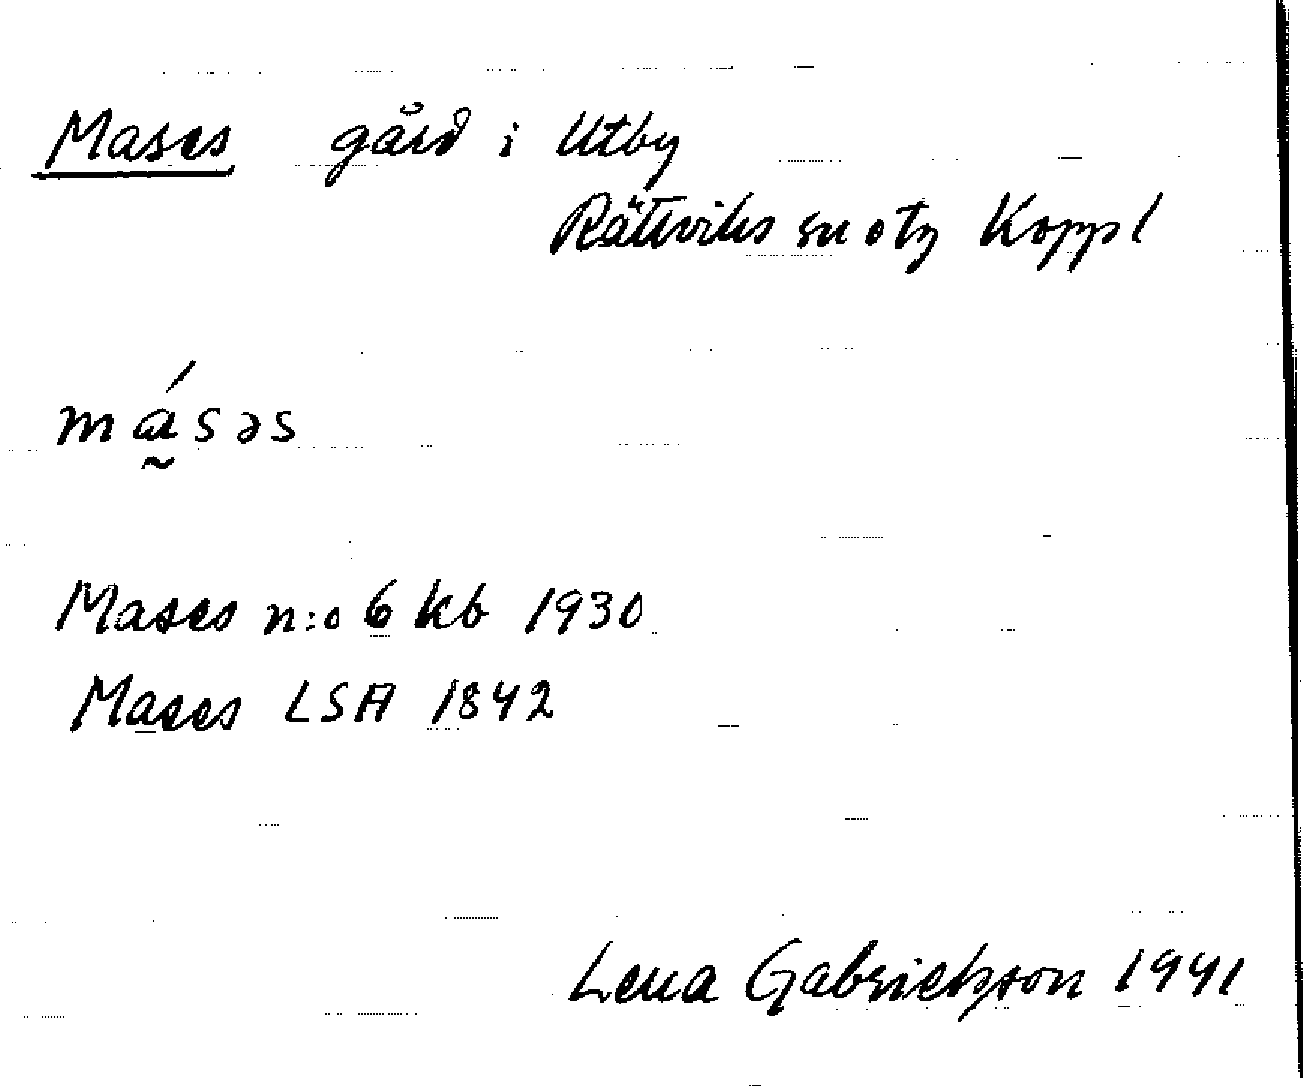 Mases gård i Utby
Rättviks sn o tg Koppl
má̰səs
Mases n:o 6 kb 1930
Mases LSA 1842
Lena Gabrielsson 1941